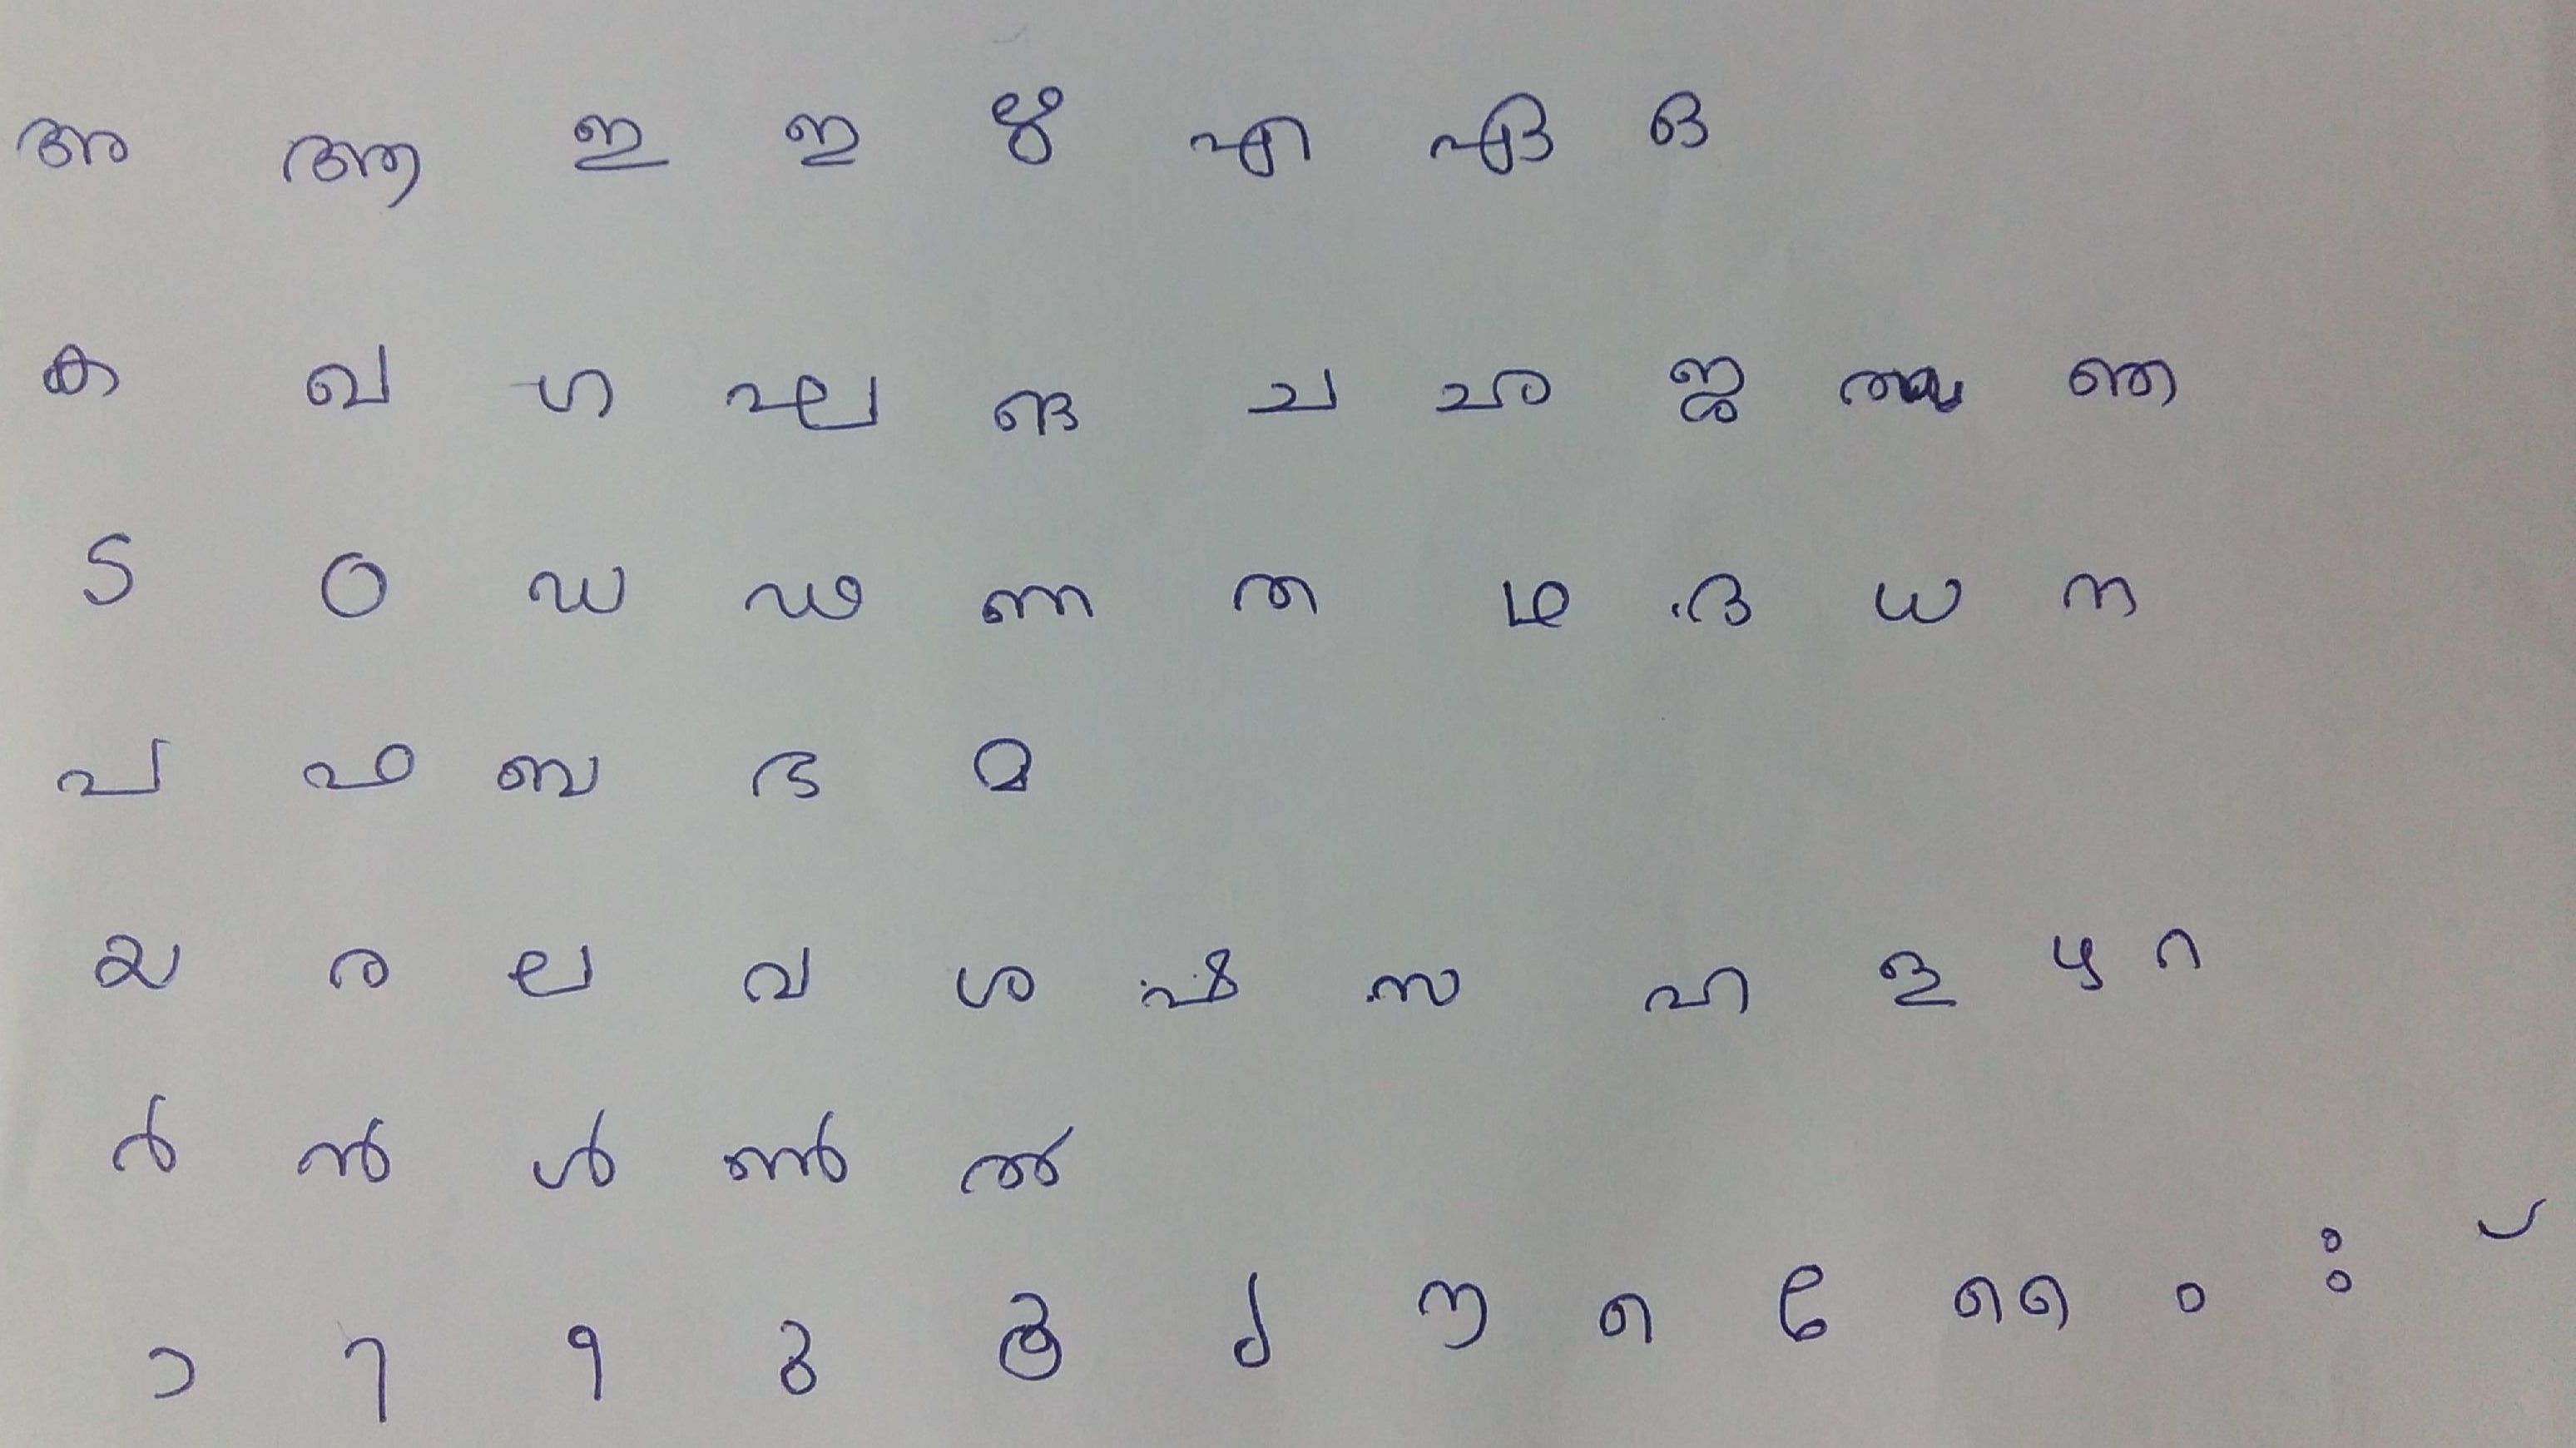 അ ആ ഇ ഇ ഴ എ ഏ ഒ
ക ഖ ഗ ഘ ങ ച ഛ ജ ഝ ഞ
ട ഠ ഡ ഢ ണ ത ഥ ദ ധ ന
പ ഫ ബ ഭ മ
യ ര ല വ ശ ഷ സ ഹ ള ഴ റ
ർ ൻ ൾ ൺ ൽ
ാ ി ീ ു ൂ ൃ ൗ െ േ ൈ ം ഃ ്